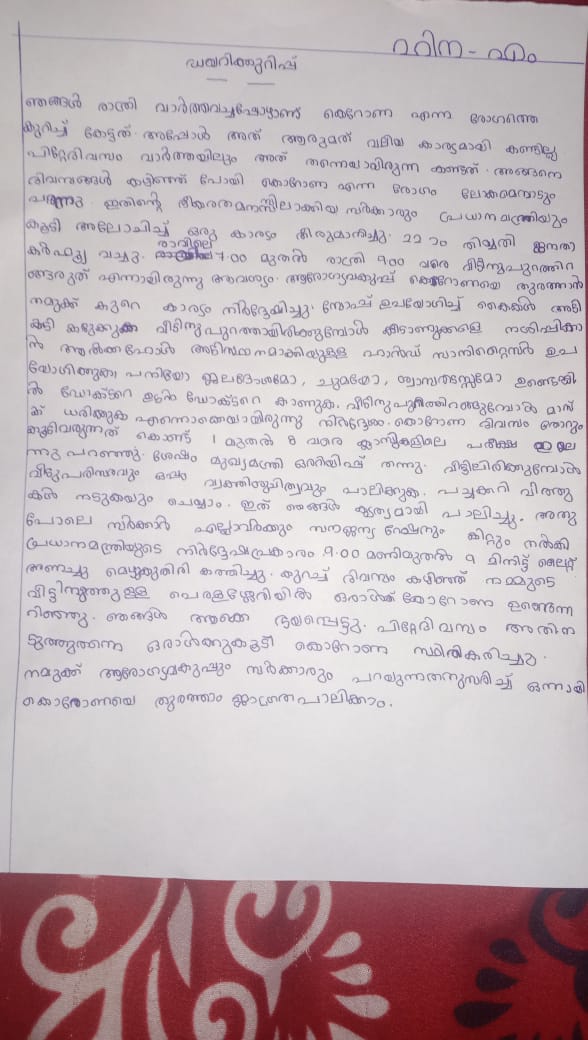 റിന - എം
ഡയറിക്കുറിപ്പ്
ഞങ്ങൾ രാത്രി വാർത്തവച്ചപ്പോഴാണ് കൊറോണ എന്ന രോഗത്തെ
കുറിച്ച് കേട്ടത്. അപ്പോൾ അത് ആരുമത് വലിയ കാര്യമായി കണ്ടില്ല
പിറ്റേദിവസം വാർത്തയിലും അത് തന്നെയായിരുന്നു കണ്ടത്. അങ്ങനെ
ദിവസങ്ങൾ കഴിഞ്ഞ് പോയി കൊറോണ എന്ന രോഗം ലോകമെമ്പാടും
പരന്നു. ഇതിന്റെ ഭീകരതമനസ്സിലാക്കിയ സർക്കാരും പ്രധാനമന്ത്രിയും
കൂടി അലോചിച്ച് ഒരു കാര്യം തീരുമാനിച്ചു. 22 ാം തിയ്യതി ജനതാ
കർഫ്യൂ വച്ചു. രാവിലെ 7.00 മുതൽ രാത്രി 9.00 വരെ വീടിനുപുറത്തിറ
ങ്ങരുത് എന്നായിരുന്നു ആവശ്യം. ആരോഗ്യവകുപ്പ് കൊറോണയെ തുരത്താൻ
നമുക്ക് കുറെ കാര്യം നിർദ്ദേശിച്ചു. സോപ്പ് ഉപയോഗിച്ച് കൈകൾ അടി
ക്കടി കഴുകുക വീടിനുപുറത്തായിരിക്കുമ്പോൾ കീടാണുക്കളെ നശിപ്പിക്കാ
ൻ ആൽക്കഹോൾ അടിസ്ഥനമാക്കിയുള്ള ഹാൻഡ് സാനിറ്റൈസർ ഉപ
യോഗിക്കുക. പനിയോ ജലദോശമോ, ചുമയോ, ശ്വാസതടസ്സമോ ഉണ്ടെങ്കി
ൽ ഡോക്ടറെ ഉടൻ ഡോക്ടറെ കാണുക. വീടിനുപുറത്തിറങ്ങുമ്പോൾ മാസ്
ക് ധരിക്കുക എന്നൊക്കെയായിരുന്നു നിർദ്ദേശം. കൊറോണ ദിവസം തോറും
കൂടിവരുന്നത് കൊണ്ട് 1 മുതൽ 8 വരെ ക്ലാസുകളിലെ പരീക്ഷ ഇല്ലെ
ന്നു പറഞ്ഞു. ശേഷം മുഖ്യമന്ത്രി ഒരറിയിപ്പ് തന്നു. വീട്ടിലിരിക്കുമ്പോൾ
വീടുപരിസരവും ഒപ്പം വ്യക്തിശുചിത്വവും പാലിക്കുക. പച്ചക്കറി വിത്തു
കൾ നടുകയും ചെയ്യാം. ഇത് ഞങ്ങൾ കൃത്യമായി പാലിച്ചു. അതു
പോലെ സർക്കാർ എല്ലാവർക്കും സൗജന്യ റേഷനും കിറ്റും നൽകി
പ്രധാനമന്ത്രിയുടെ നിർദ്ദേഷപ്രകാരം 9.00 മണിമുതൽ 9 മിനിട്ട് ലൈറ്റ്
അണച്ചു മെഴുകുതിരി കത്തിച്ചു. കുറച്ച് ദിവസം കഴിഞ്ഞ് നമ്മുടെ
വീട്ടിനടുത്തുള്ള പെരളശ്ശേരിയിൽ ഒരാൾക് കോറോണ ഉണ്ടെന്ന
റിഞ്ഞു. ഞങ്ങൾ ആകെ ഭയപ്പെട്ടു. പിറ്റേദിവസം അതിന
ടുത്തുതന്നെ ഒരാൾക്കുകൂടി കൊറോണ സ്ഥിതികരിച്ചു.
നമുക്ക് ആരോഗ്യവകുപ്പും സർക്കാരും പറയുന്നതനുസരിച്ച് ഒന്നായി
കൊറോണയെ തുരത്താം ജാഗ്രതപാലിക്കാം.